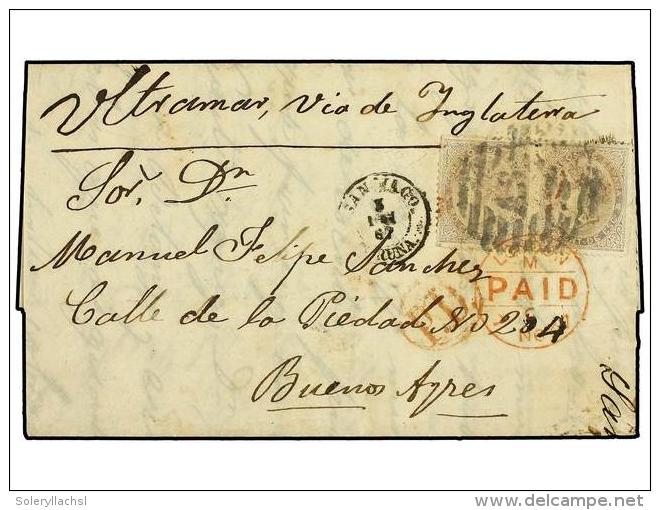 Ultramar, via de Inglaterra
Sor. Dn
Manuel Felipe Sanchez
Calle de la Piedad No 204
Buenos Ayres
SANTIAGO.
3
CORUÑA.
LONDON
M
PAID
NO
PD
San
Soleryllachsl
delcampe.net